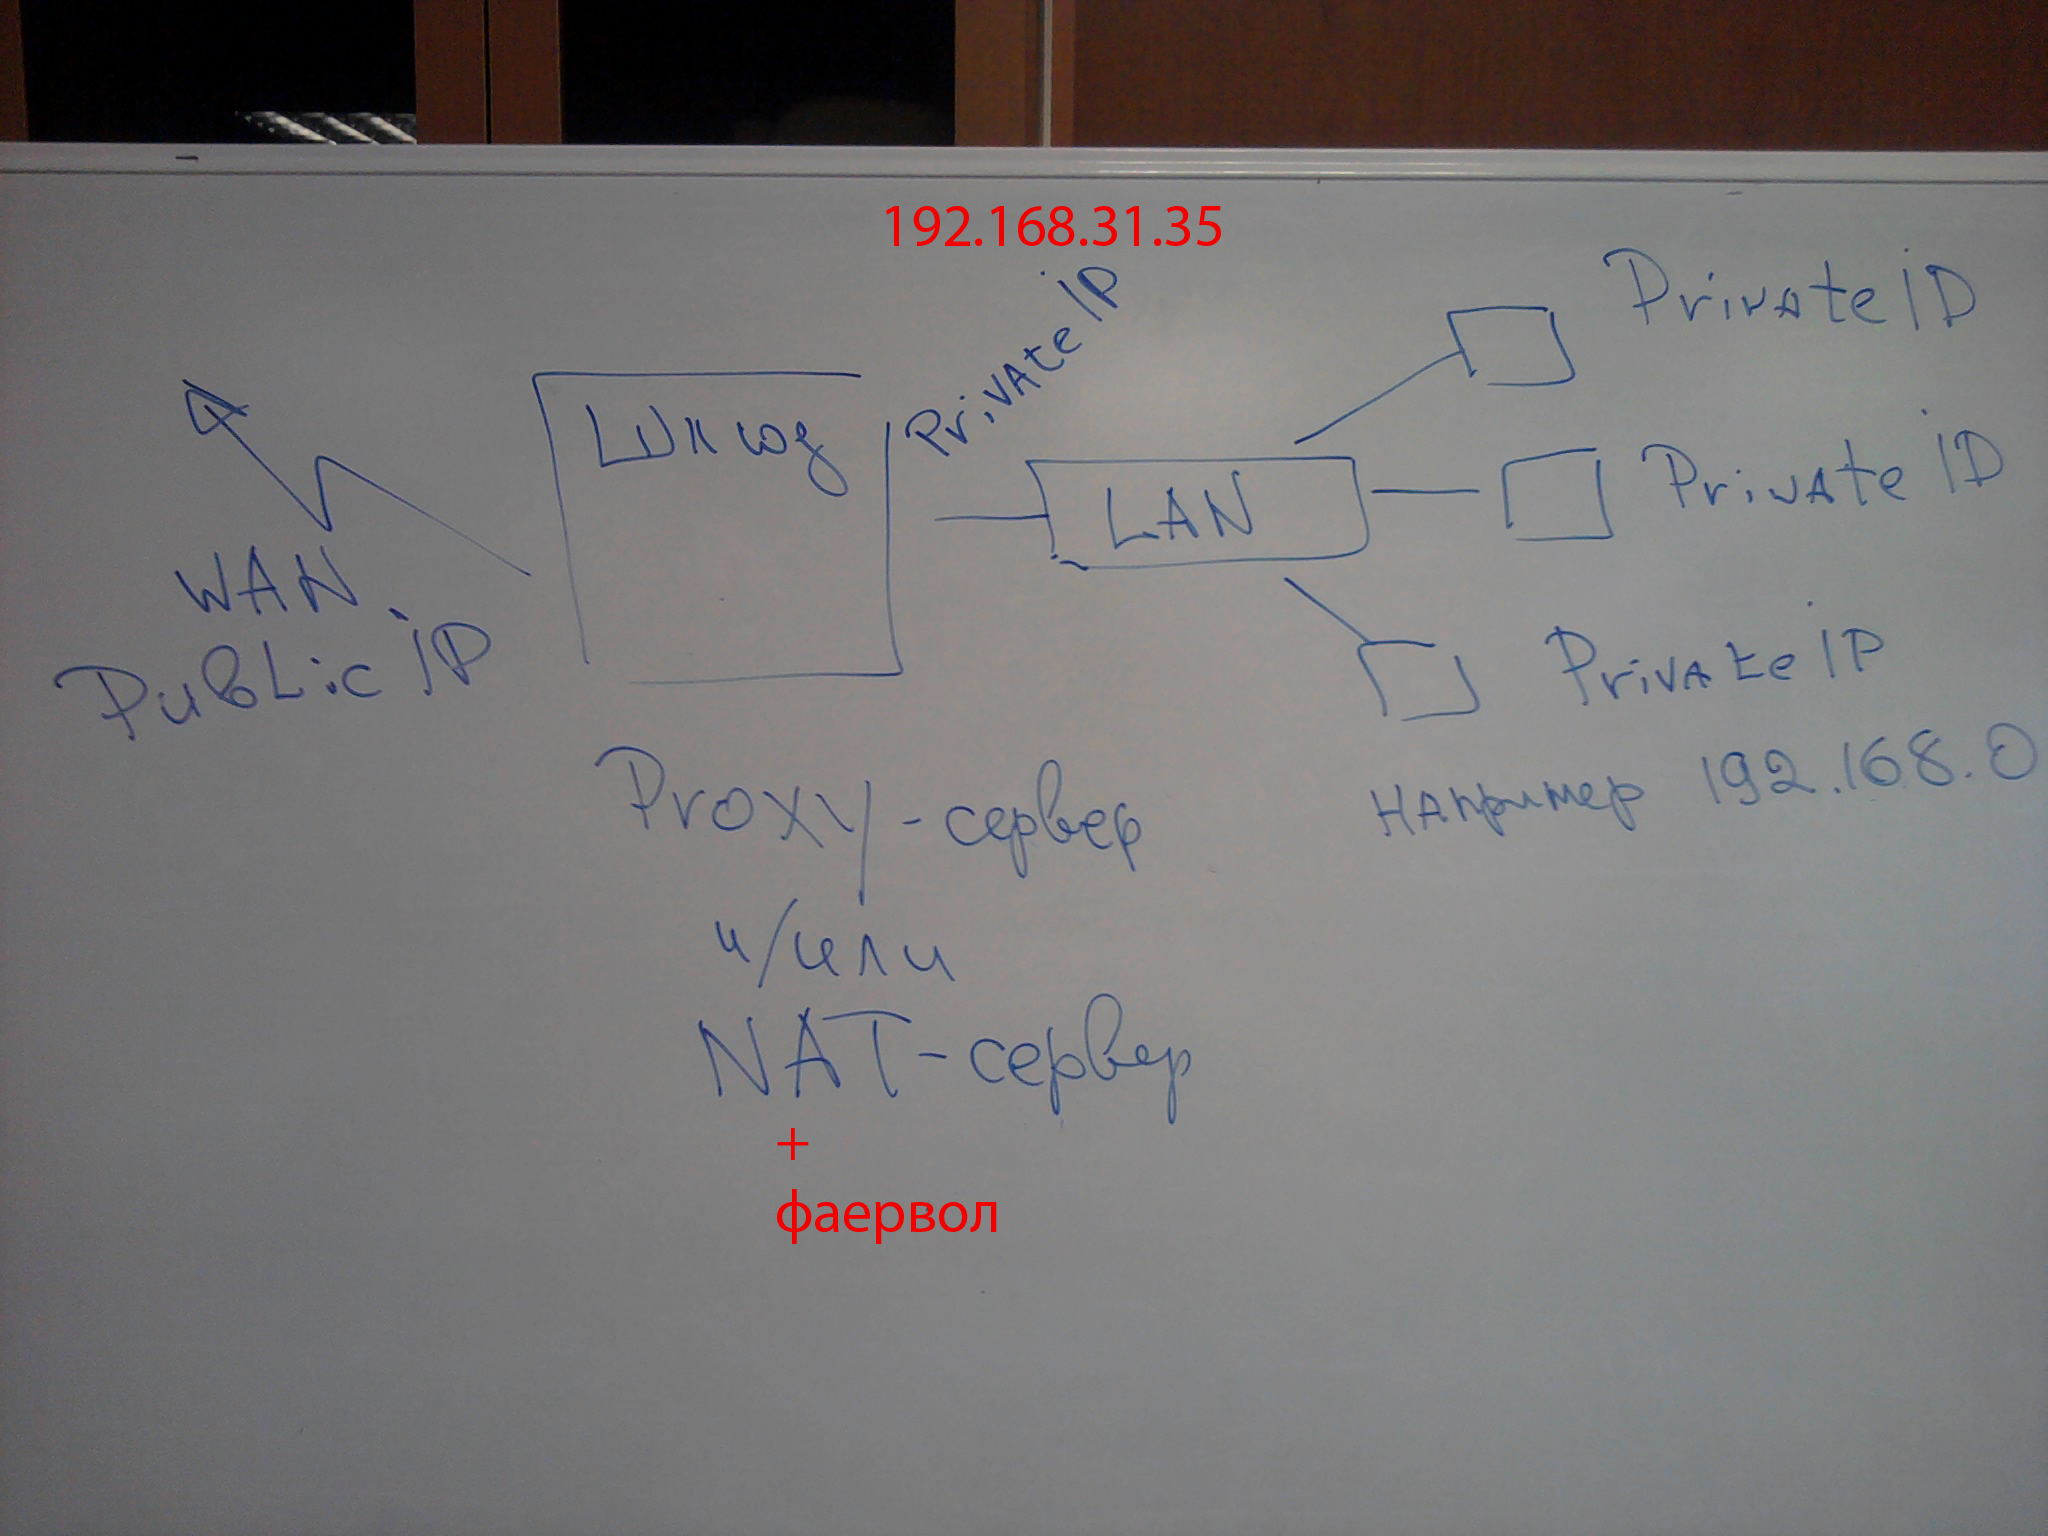 192.168.31.35
Private IP
Шлюз
LAN
Private ID
Private ID
Private IP
например 192.168.0
WAN
Public IP
Proxy-сервер
и/или
NAT-сервер
+
фаервол